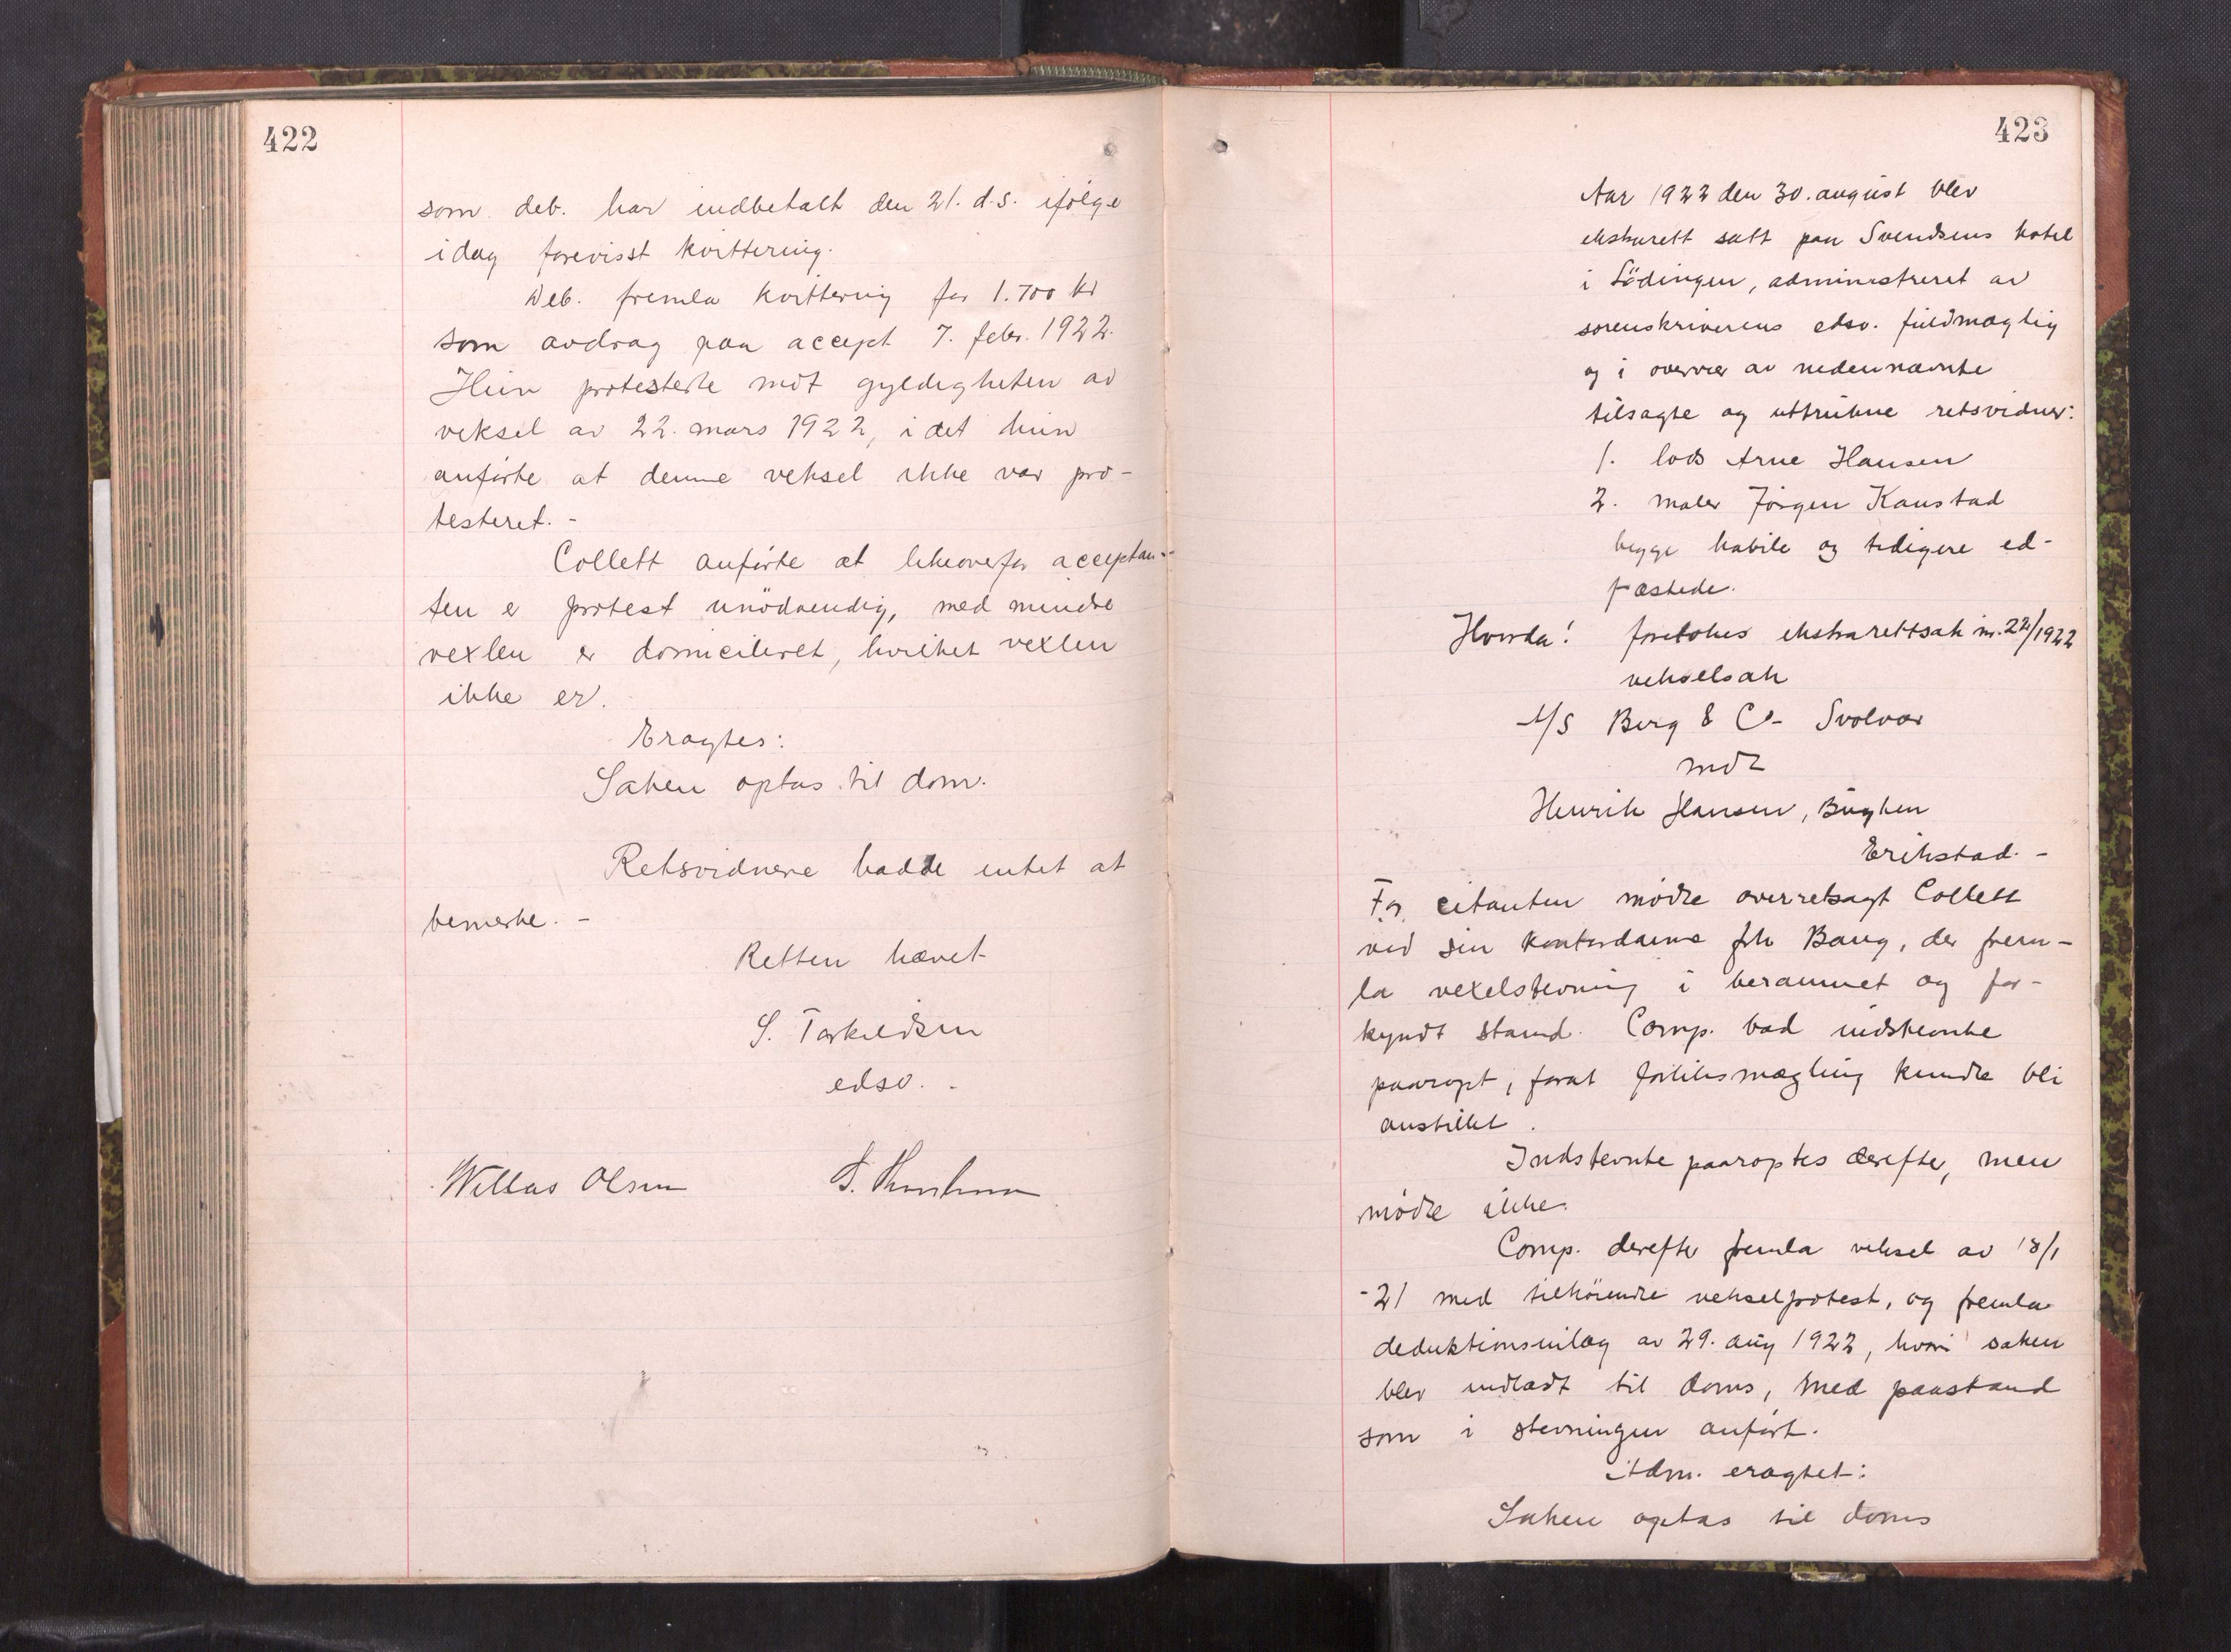 422
som deb. har indbetalt den 21. d.s. ifølge
idag forevisst kvittering.
Deb. fremla kvittering for 1.700 kr
som avdrag paa accept 7. febr. 1922.
Hun protesterte mot gyldigheten av
veksel av 22. mars 1922, i det hun
anførte at denne veksel ikke var pro-
testeret. -
Collett anførte at likeoverfor acceptan-
ten er protest unödvendig, med mindre
vexlen er domicileret, hvilket vexlen
ikke er.
Eragtes:
Saken optas til dom.
Retsvidnene hadde intet at
bemerke. -
Retten hævet
S. Torkildsen
edsv. -
Willas Olsen
423
Aar 1922 den 30. august blev
ekstrarett satt paa Svendsens hotel
i Lödingen, administreret av
sorenskriverens edsv. fuldmægtig
og i overvær av nedennævnte
tilsagte og uttrukne retsvidner:
1. lods Arne Hansen
2. maler Jörgen Kanstad
begge habile og tidligere ed-
fæstede.
Hvorda! foretokes ekstrarettsak nr. 22/1922
vekselsak
A/S Berg & Co - Svolvær
mot
Henrik Hansen, Bugken
Erikstad. -
For citanten mødte overretssagf Collett
ved sin kontordame frk Bang, der frem-
la vexelstevning i berammet og for-
kyndt stand. Comp. bad indstevnte
paaropt, forat forliksmægling kunde bli
anstillet.
Indstevnte paaroptes derefter, men
mødte ikke.
Comp. derefter fremla veksel av 18/1
-21 med tilhørende vekselprotest, og fremla
deduktionsinlæg av 29. aug 1922, hvori saken
blev indladt til doms, med paastand
som i stevningen anført.
Adm. eragtet:
Saken optas til doms